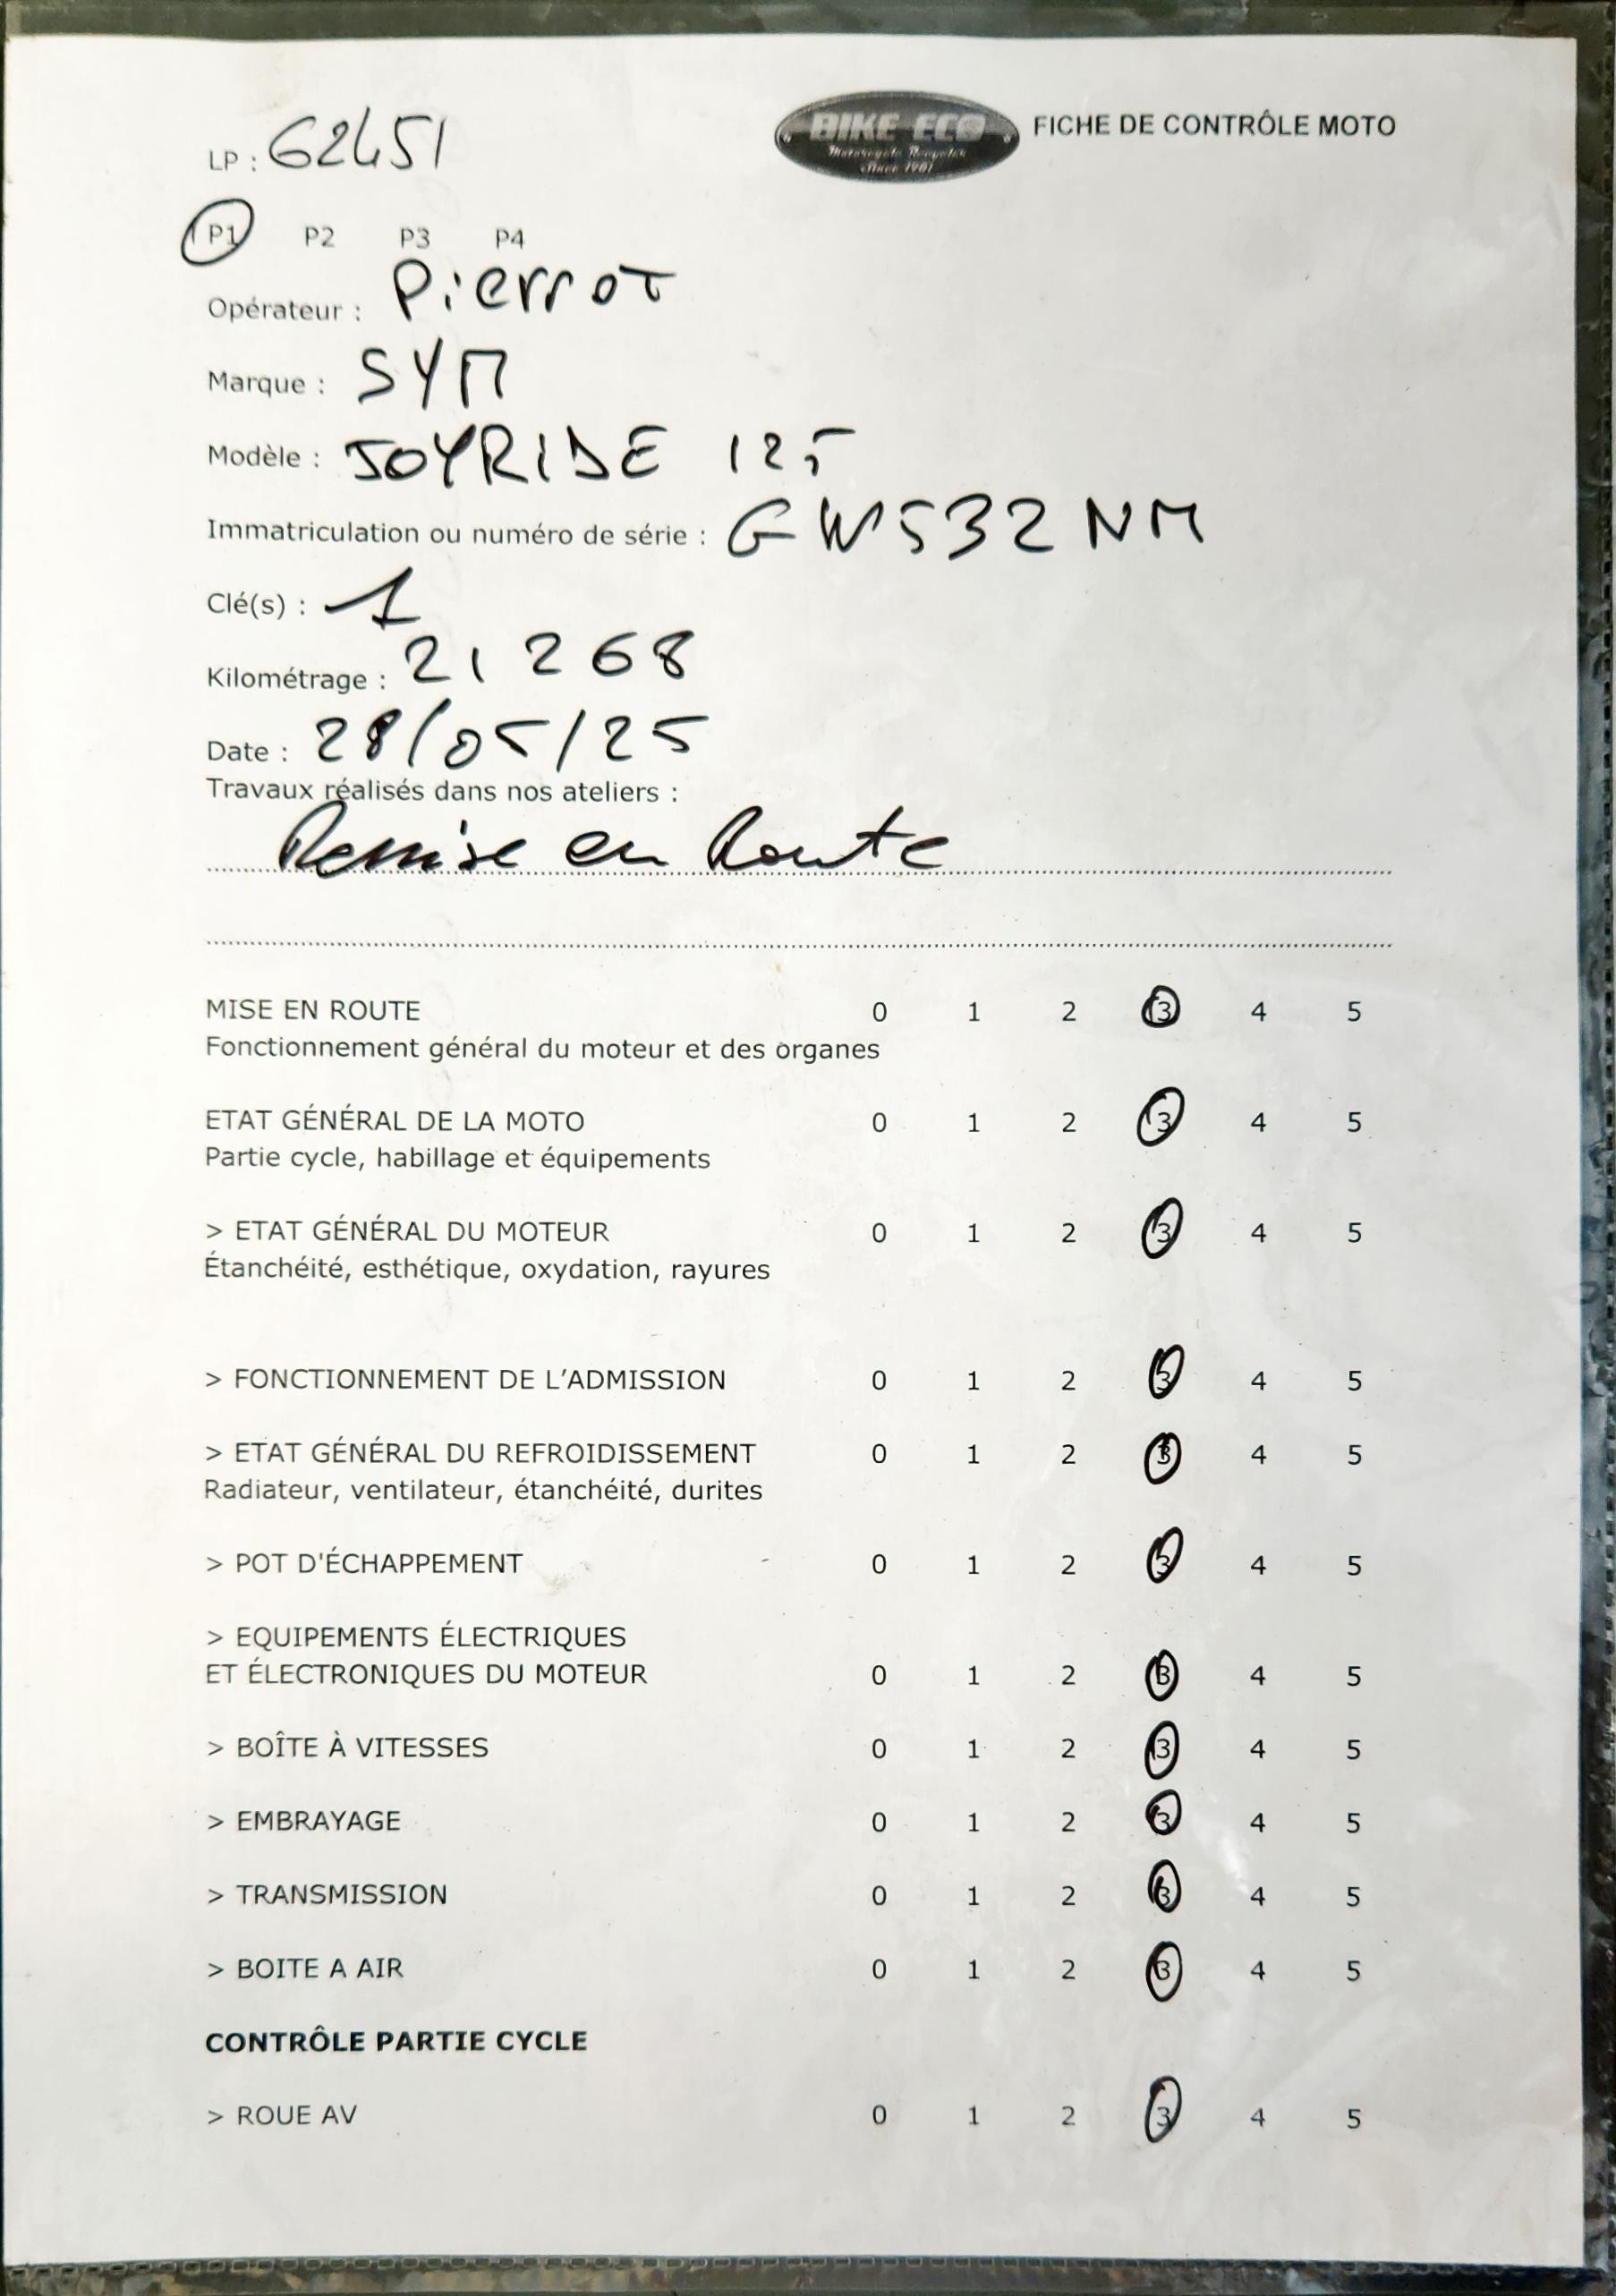 LP : 62451
BIKE ECO
Motorcycle Recycler
Since 1981
FICHE DE CONTRÔLE MOTO
P1 P2 P3 P4
Opérateur : Pierrot
Marque : SYM
Modèle : JOYRIDE 125
Immatriculation ou numéro de série : GW532NM
Clé(s) : 1
Kilométrage : 21 268
Date : 28/05/25
Travaux réalisés dans nos ateliers :
Remise en Route
MISE EN ROUTE 0 1 2 3 4 5
Fonctionnement général du moteur et des organes
ETAT GÉNÉRAL DE LA MOTO 0 1 2 3 4 5
Partie cycle, habillage et équipements
> ETAT GÉNÉRAL DU MOTEUR 0 1 2 3 4 5
Étanchéité, esthétique, oxydation, rayures
> FONCTIONNEMENT DE L'ADMISSION 0 1 2 3 4 5
> ETAT GÉNÉRAL DU REFROIDISSEMENT 0 1 2 3 4 5
Radiateur, ventilateur, étanchéité, durites
> POT D'ÉCHAPPEMENT 0 1 2 3 4 5
> EQUIPEMENTS ÉLECTRIQUES
ET ÉLECTRONIQUES DU MOTEUR 0 1 2 3 4 5
> BOÎTE À VITESSES 0 1 2 3 4 5
> EMBRAYAGE 0 1 2 3 4 5
> TRANSMISSION 0 1 2 3 4 5
> BOITE A AIR 0 1 2 3 4 5
CONTRÔLE PARTIE CYCLE
> ROUE AV 0 1 2 3 4 5